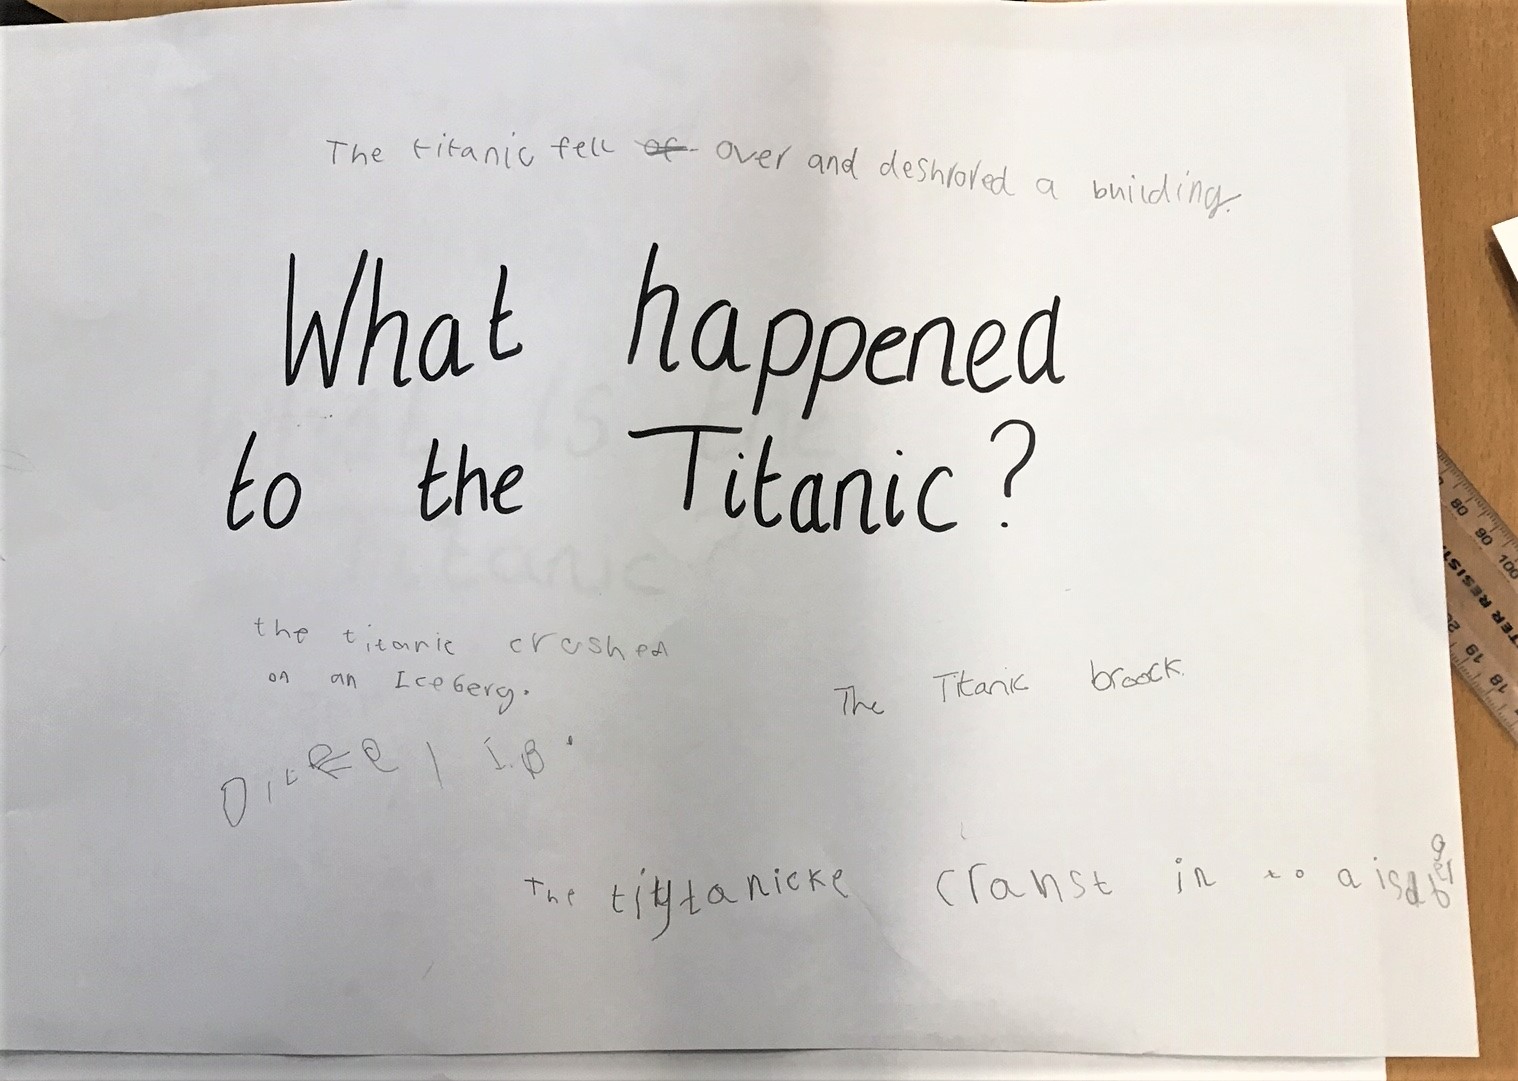 The titanic fell of over and deshroled a building.
What happened
to the Titanic?
the titanic crashed
on an Iceberg.
The Titanic broock.
I.B.
The tittanicke cranst in to a isdberg
80 90 100
TER RESIST
20 19 18